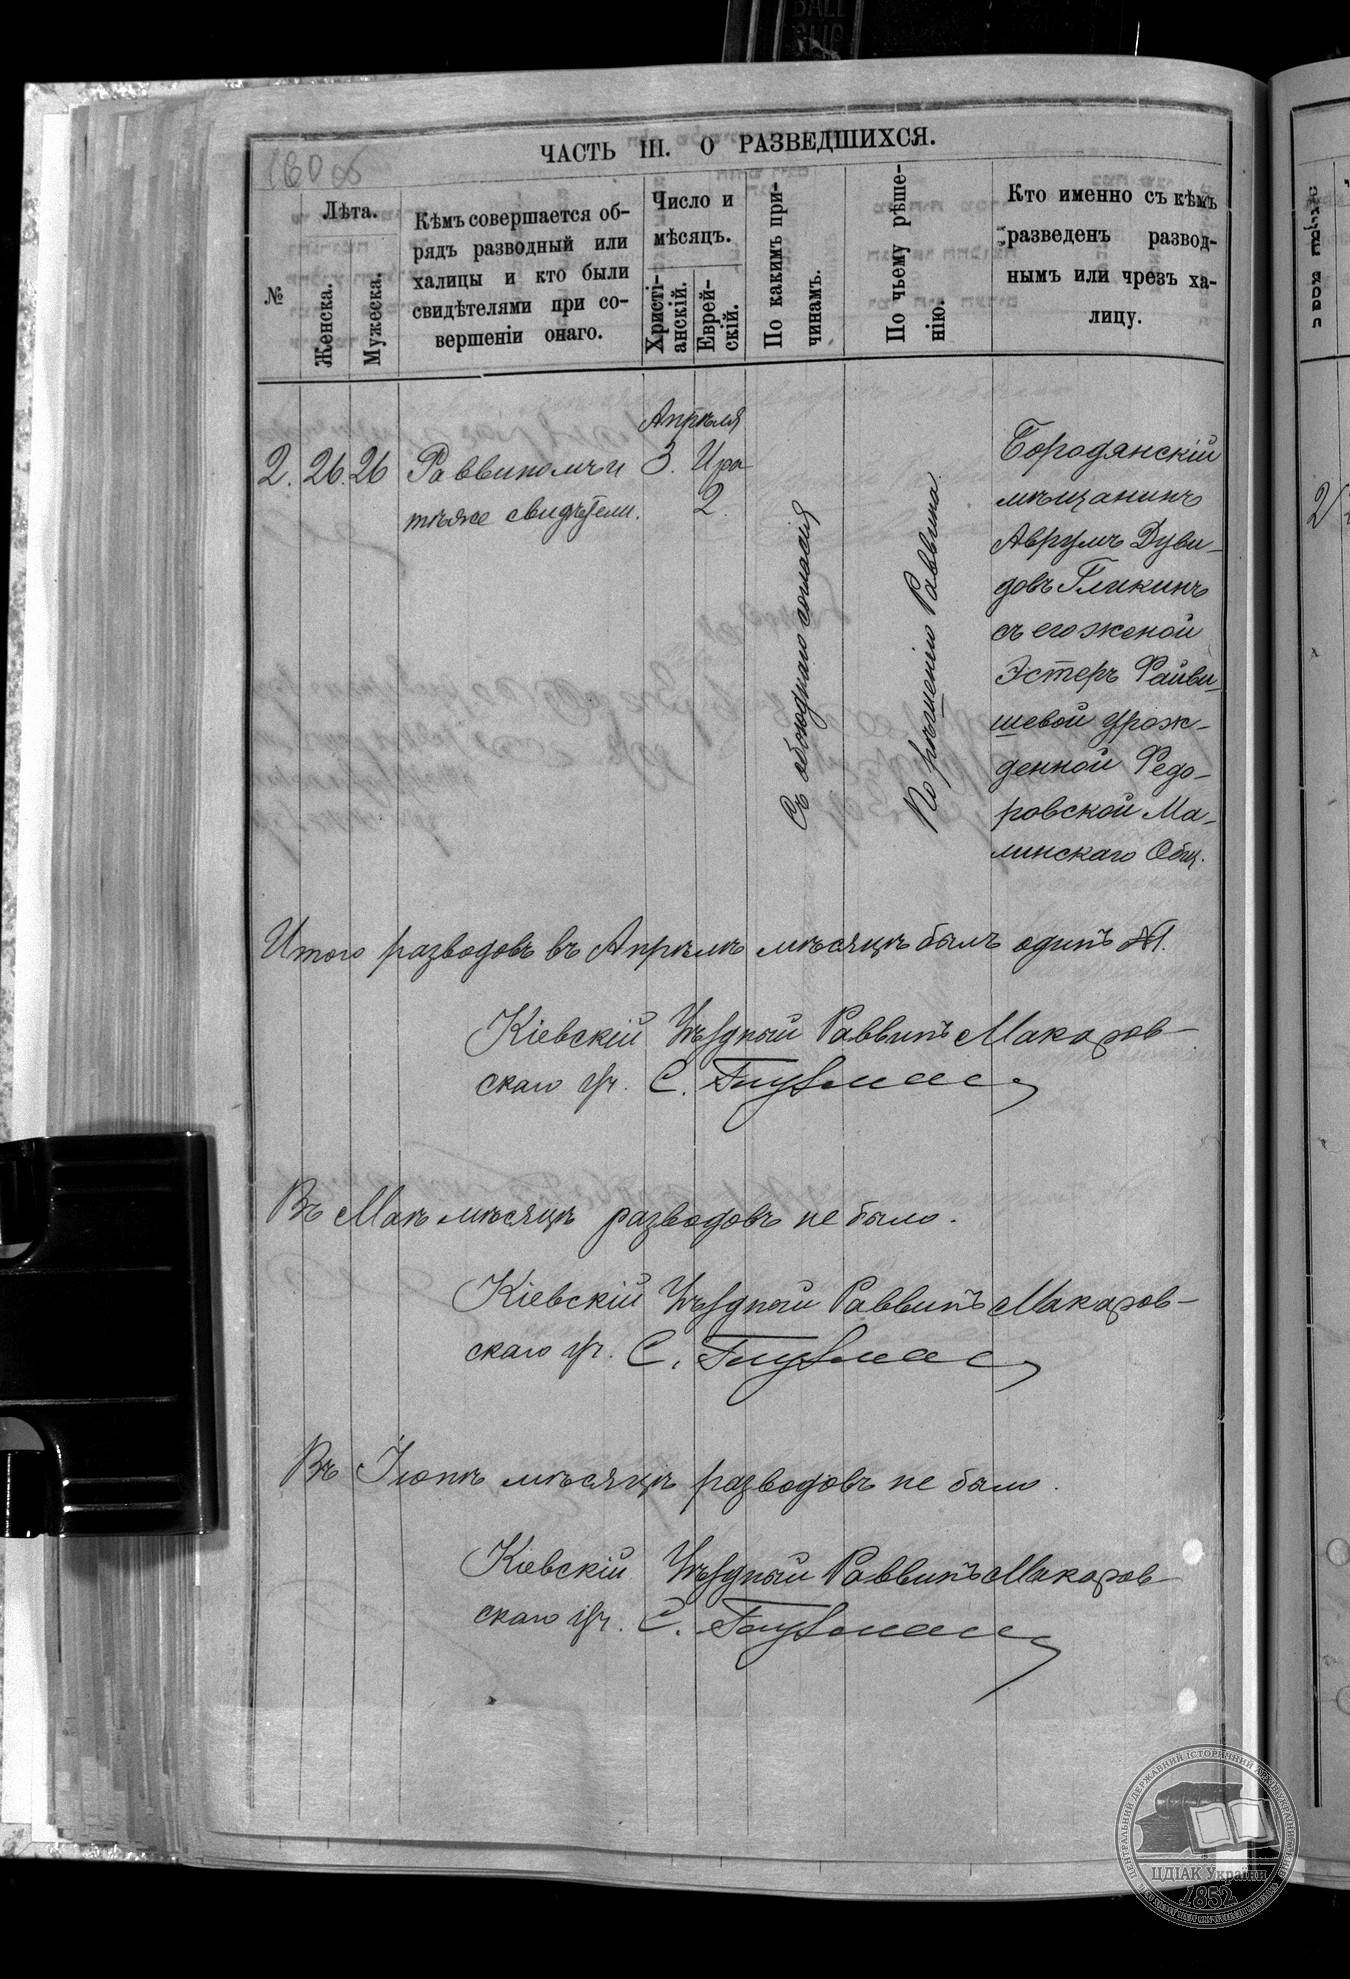 160 об
ЧАСТЬ III. О РАЗВЕДШИХСЯ.
№
Лѣта.
Женска.
Мужеска.
Кѣмъ совершается об-
рядъ разводный или
халицы и кто были
свидѣтелями при со-
вершеніи онаго.
Число и
мѣсяцъ.
Христі-
анскій.
Еврей-
скій.
По какимъ при-
чинамъ.
По чьему рѣше-
нію.
Кто именно съ кѣмъ
разведенъ развод-
нымъ или чрезъ ха-
лицу.
Апрѣля
2. 26. 26 Раввиномъ и 3. Ира
тѣже свидѣтели. 2.
Съ обоюднаго согласія
По рѣшенію Раввина.
Бородянскій
мѣщанинъ
Аврумъ Дуви-
довъ Гликинъ
съ его женой
Эстеръ Файви-
шевой урож-
денной Федо-
ровской Ма-
линскаго Общ.
Итого разводовъ въ Апрѣлѣ мѣсяцѣ былъ одинъ №1.
Кіевскій Уѣздный Раввинъ Макаров-
скаго уч. С. Глузман
Въ Маѣ мѣсяцѣ разводовъ не было.
Кіевскій Уѣздный Раввинъ Макаров-
скаго уч. С. Глузман
Въ Іюнѣ мѣсяцѣ разводовъ не было.
Кіевскій Уѣздный Раввинъ Макаров-
скаго уч. С. Глузман
2
ЦДІАК України
1852